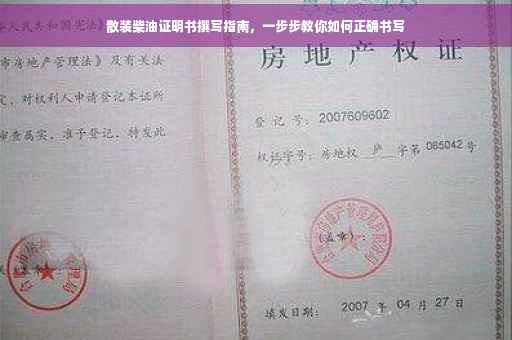 散装柴油证明书撰写指南，一步步教你如何正确书写
人民共和国宪法》
市房地产管理法》及有关法
定，对权利人申请登记本证所
审查属实，准予登记，特发此
房地产权证
登记号：2007609602
权证字号：房地权 庐 字第 085042 号
(盖章)：
填发日期：2007 年 04 月 27 日